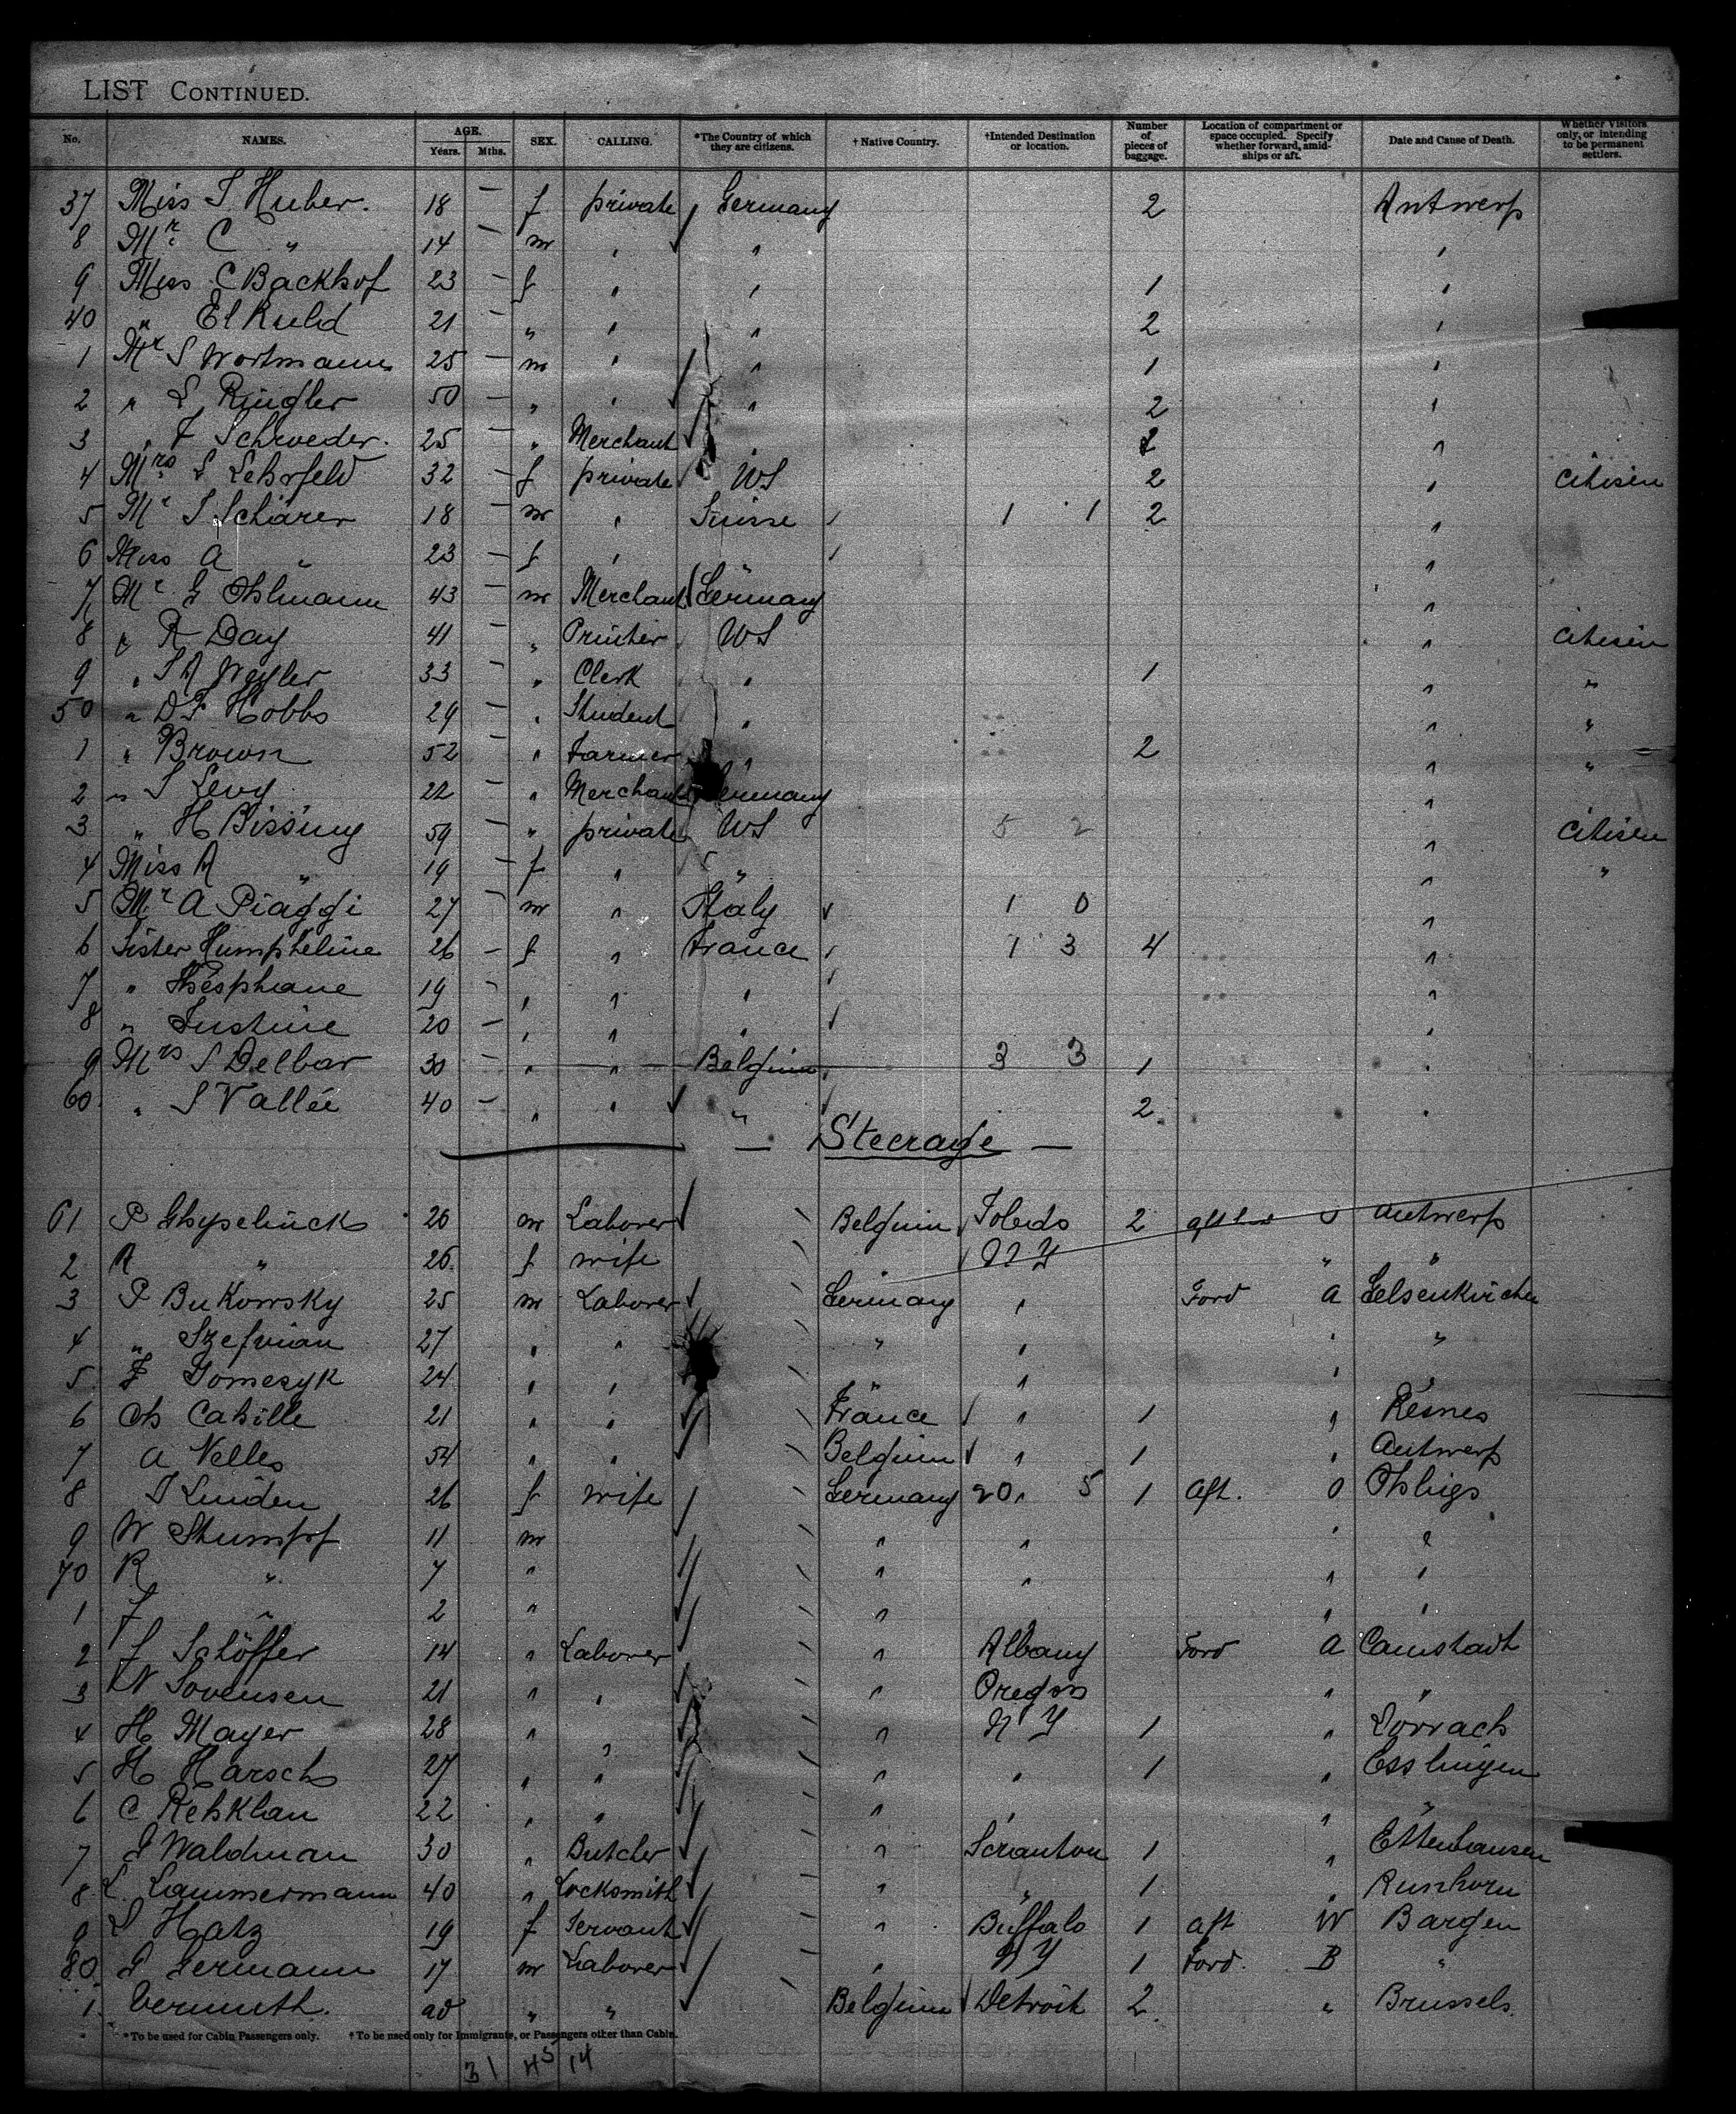 LIST CONTINUED.
No. NAMES. AGE. Years. Mths. SEX. CALLING. *The Country of which they are citizens. † Native Country. †Intended Destination or location. Number of pieces of baggage. Location of compartment or space occupied. Specify whether forward, amidships or aft. Date and Cause of Death. Whether Visitors only, or intending to be permanent settlers.
37 Miss S Huber. 18 — f private Germany 2 Antwerp
8 Mr. C " 14 — m " " "
9 Miss C Backhof 23 — f " " 1 "
40 " El Ruhd 21 — " " " 2 "
1 Mr S Wortmann 25 — m " " 1 "
2 " L Ringler 50 — " " " 2 "
3 " F Schroeder. 25 — " Merchant " 2 "
4 Mrs L Lehrfeld 32 — f private US 2 " Citisen
5 Mr S Schärer 18 — m " Suisse 1 1 2 "
6 Miss A " 23 — f " " "
7 Mr G Ohlmann 43 — m Merchant Germany "
8 " R Day 41 — " Printer US " Citisen
9 " S A Weyler 33 — " Clerk " 1 " "
50 " D F Hobbs 29 — " Student " " "
1 " Brown 52 — " Farmer " 2 " "
2 " S Levy 22 — " Merchant Germany "
3 " H Bissing 59 — " private US 5 2 " Citisen
4 Miss A " 19 — f " " " "
5 Mr A Piaggi 27 — m " Italy 1 0 "
6 Sister Humpheline 26 — f " France 1 3 4 "
7 " Thésphane 19 — " " " "
8 " Justine 20 — " " " "
9 Mrs S Delbar 30 — " " Belgium 3 3 1 "
60 " S Vallée 40 — " " " 2 "
— Steerage —
61 P Ghyselinck 26 m Laborer Belgium Toledo 2 aft O Antwerp
2 A " 26 f wife N Y " "
3 P Bukowsky 25 m Laborer Germany " Ford A Gelsenkirchen
4 " Szefman 27 " " " " " "
5 F Gomesyk 24 " " " " " "
6 Ch Cahille 21 " " France " 1 " Resnes
7 A Nelles 54 " " Belgium " 1 " Antwerp
8 J Linden 26 f wife Germany 20 " 5 1 aft. O Ohligs
9 W Stumpf 11 m " " " "
70 R " 7 " " " " "
1 F " 2 " " " "
2 J Schöffer 14 " Laborer " Albany Ford A Camstadt
3 N Sovensen 21 " " " Oregon " "
4 H Mayer 28 " " " N Y 1 " Lorrach
5 H Harsch 27 " " " " 1 " Esslingen
6 C Rehklau 22 " " " " " "
7 J Waldman 30 " Butcher " Scranton 1 " Ettenhausen
8 L. Lammermann 40 " Locksmith " " 1 " Runhorn
9 L Hatz 19 f Servant " Buffalo 1 aft W Bargen
80. J Germann 17 m Laborer " N Y 1 Ford. B "
1. Vermuth. ad " " Belgium Detroit 2 " Brussels.
*To be used for Cabin Passengers only. †To be used only for Immigrants, or Passengers other than Cabin.
31 45 14